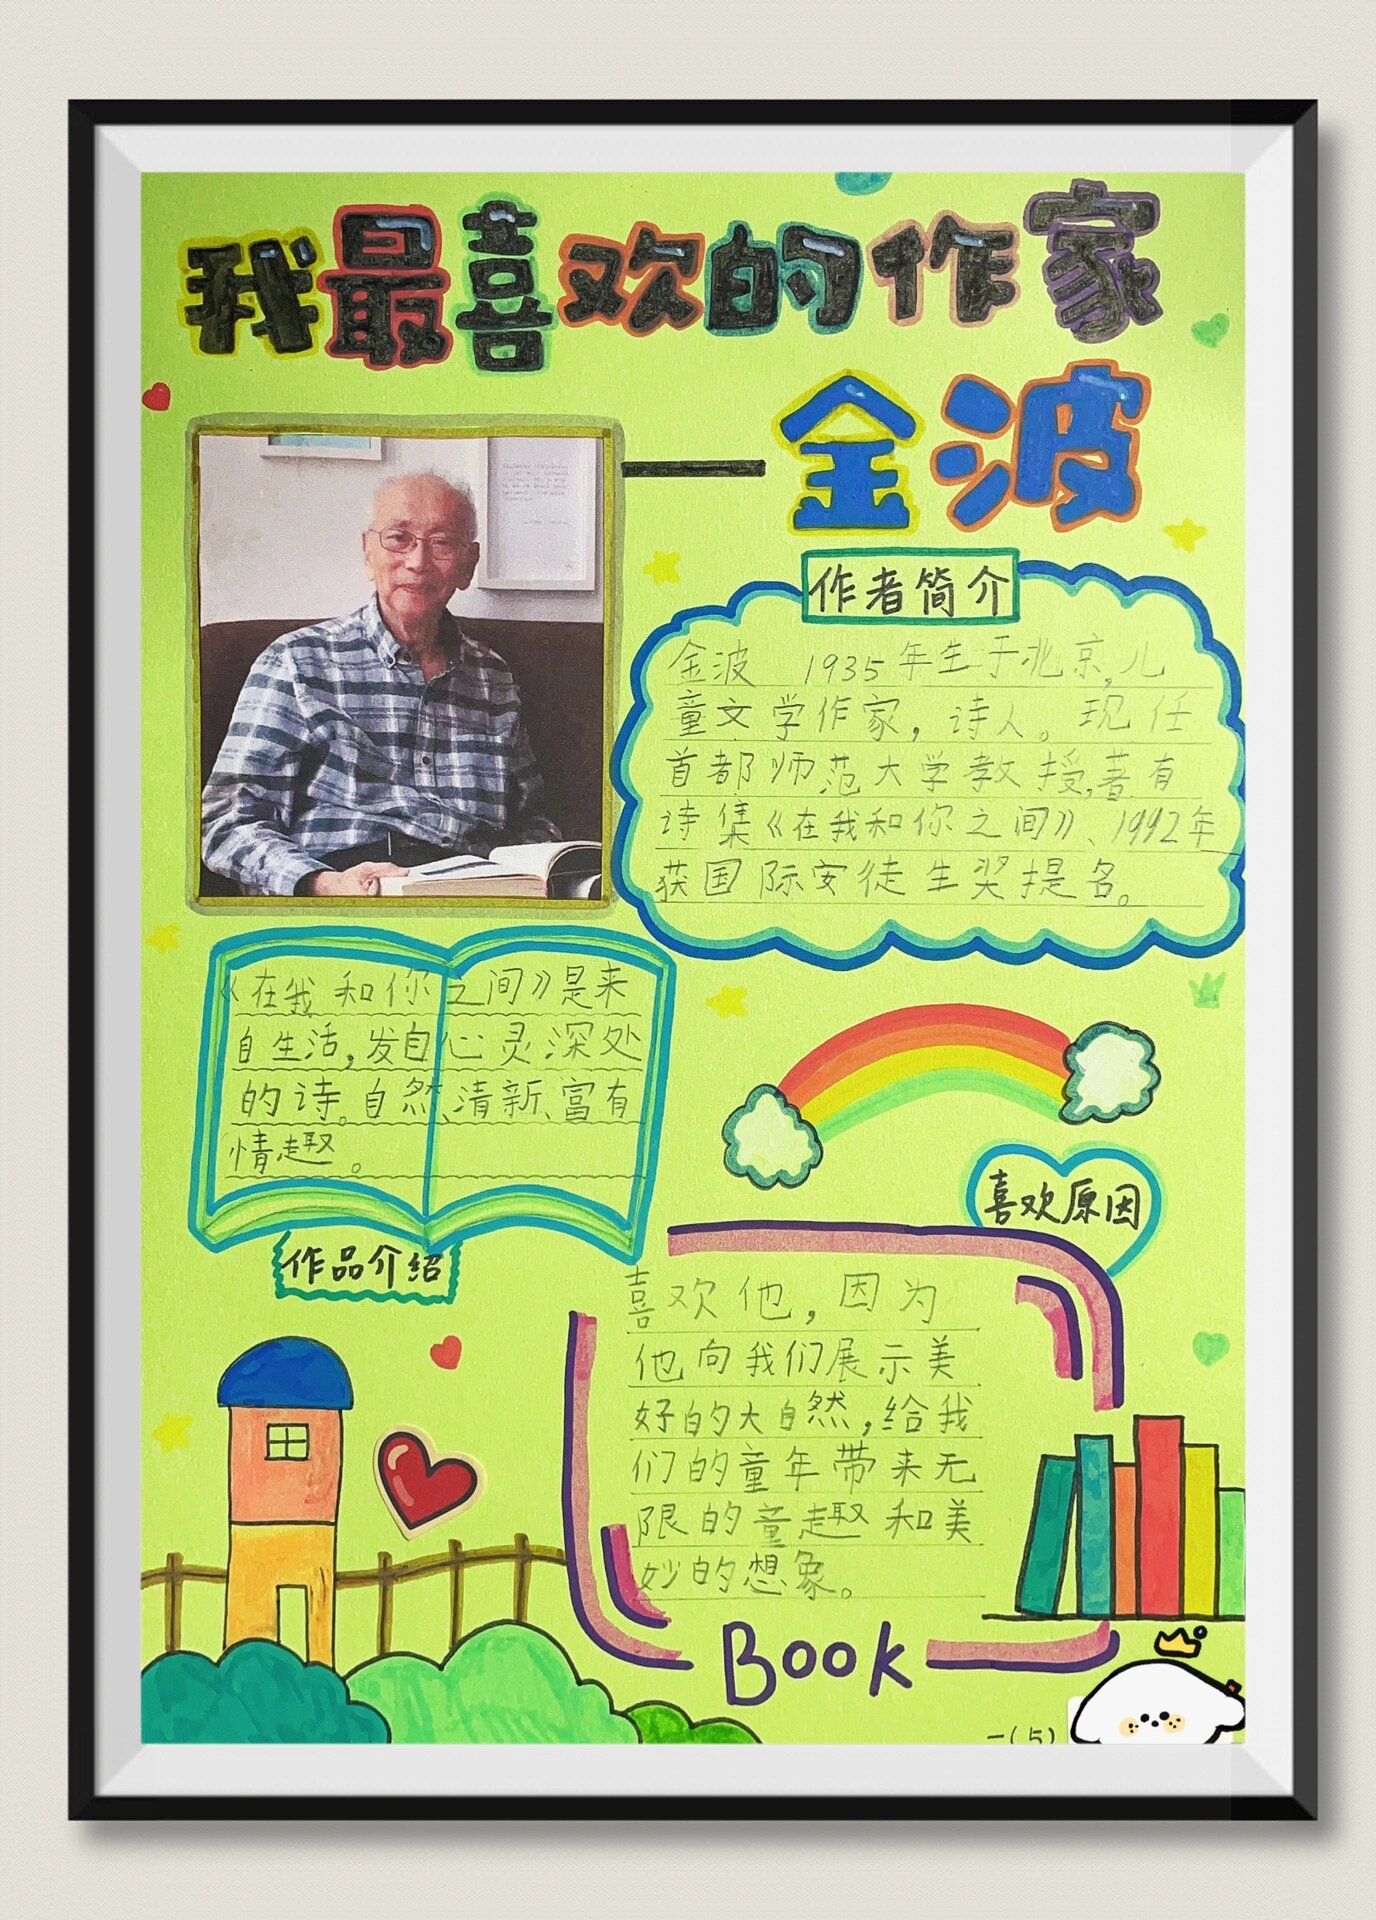 我最喜欢的作家
——金波
作者简介
金波 1935年生于北京,儿
童文学作家，诗人。现任
首都师范大学教授,著有
诗集《在我和你之间》、1992年
获国际安徒生奖提名。
《在我和你之间》是来
自生活,发自心灵深处
的诗。自然、清新、富有
情趣。
作品介绍
喜欢原因
喜欢他，因为
他向我们展示美
好的大自然,给我
们的童年带来无
限的童趣和美
妙的想象。
Book
一(5)